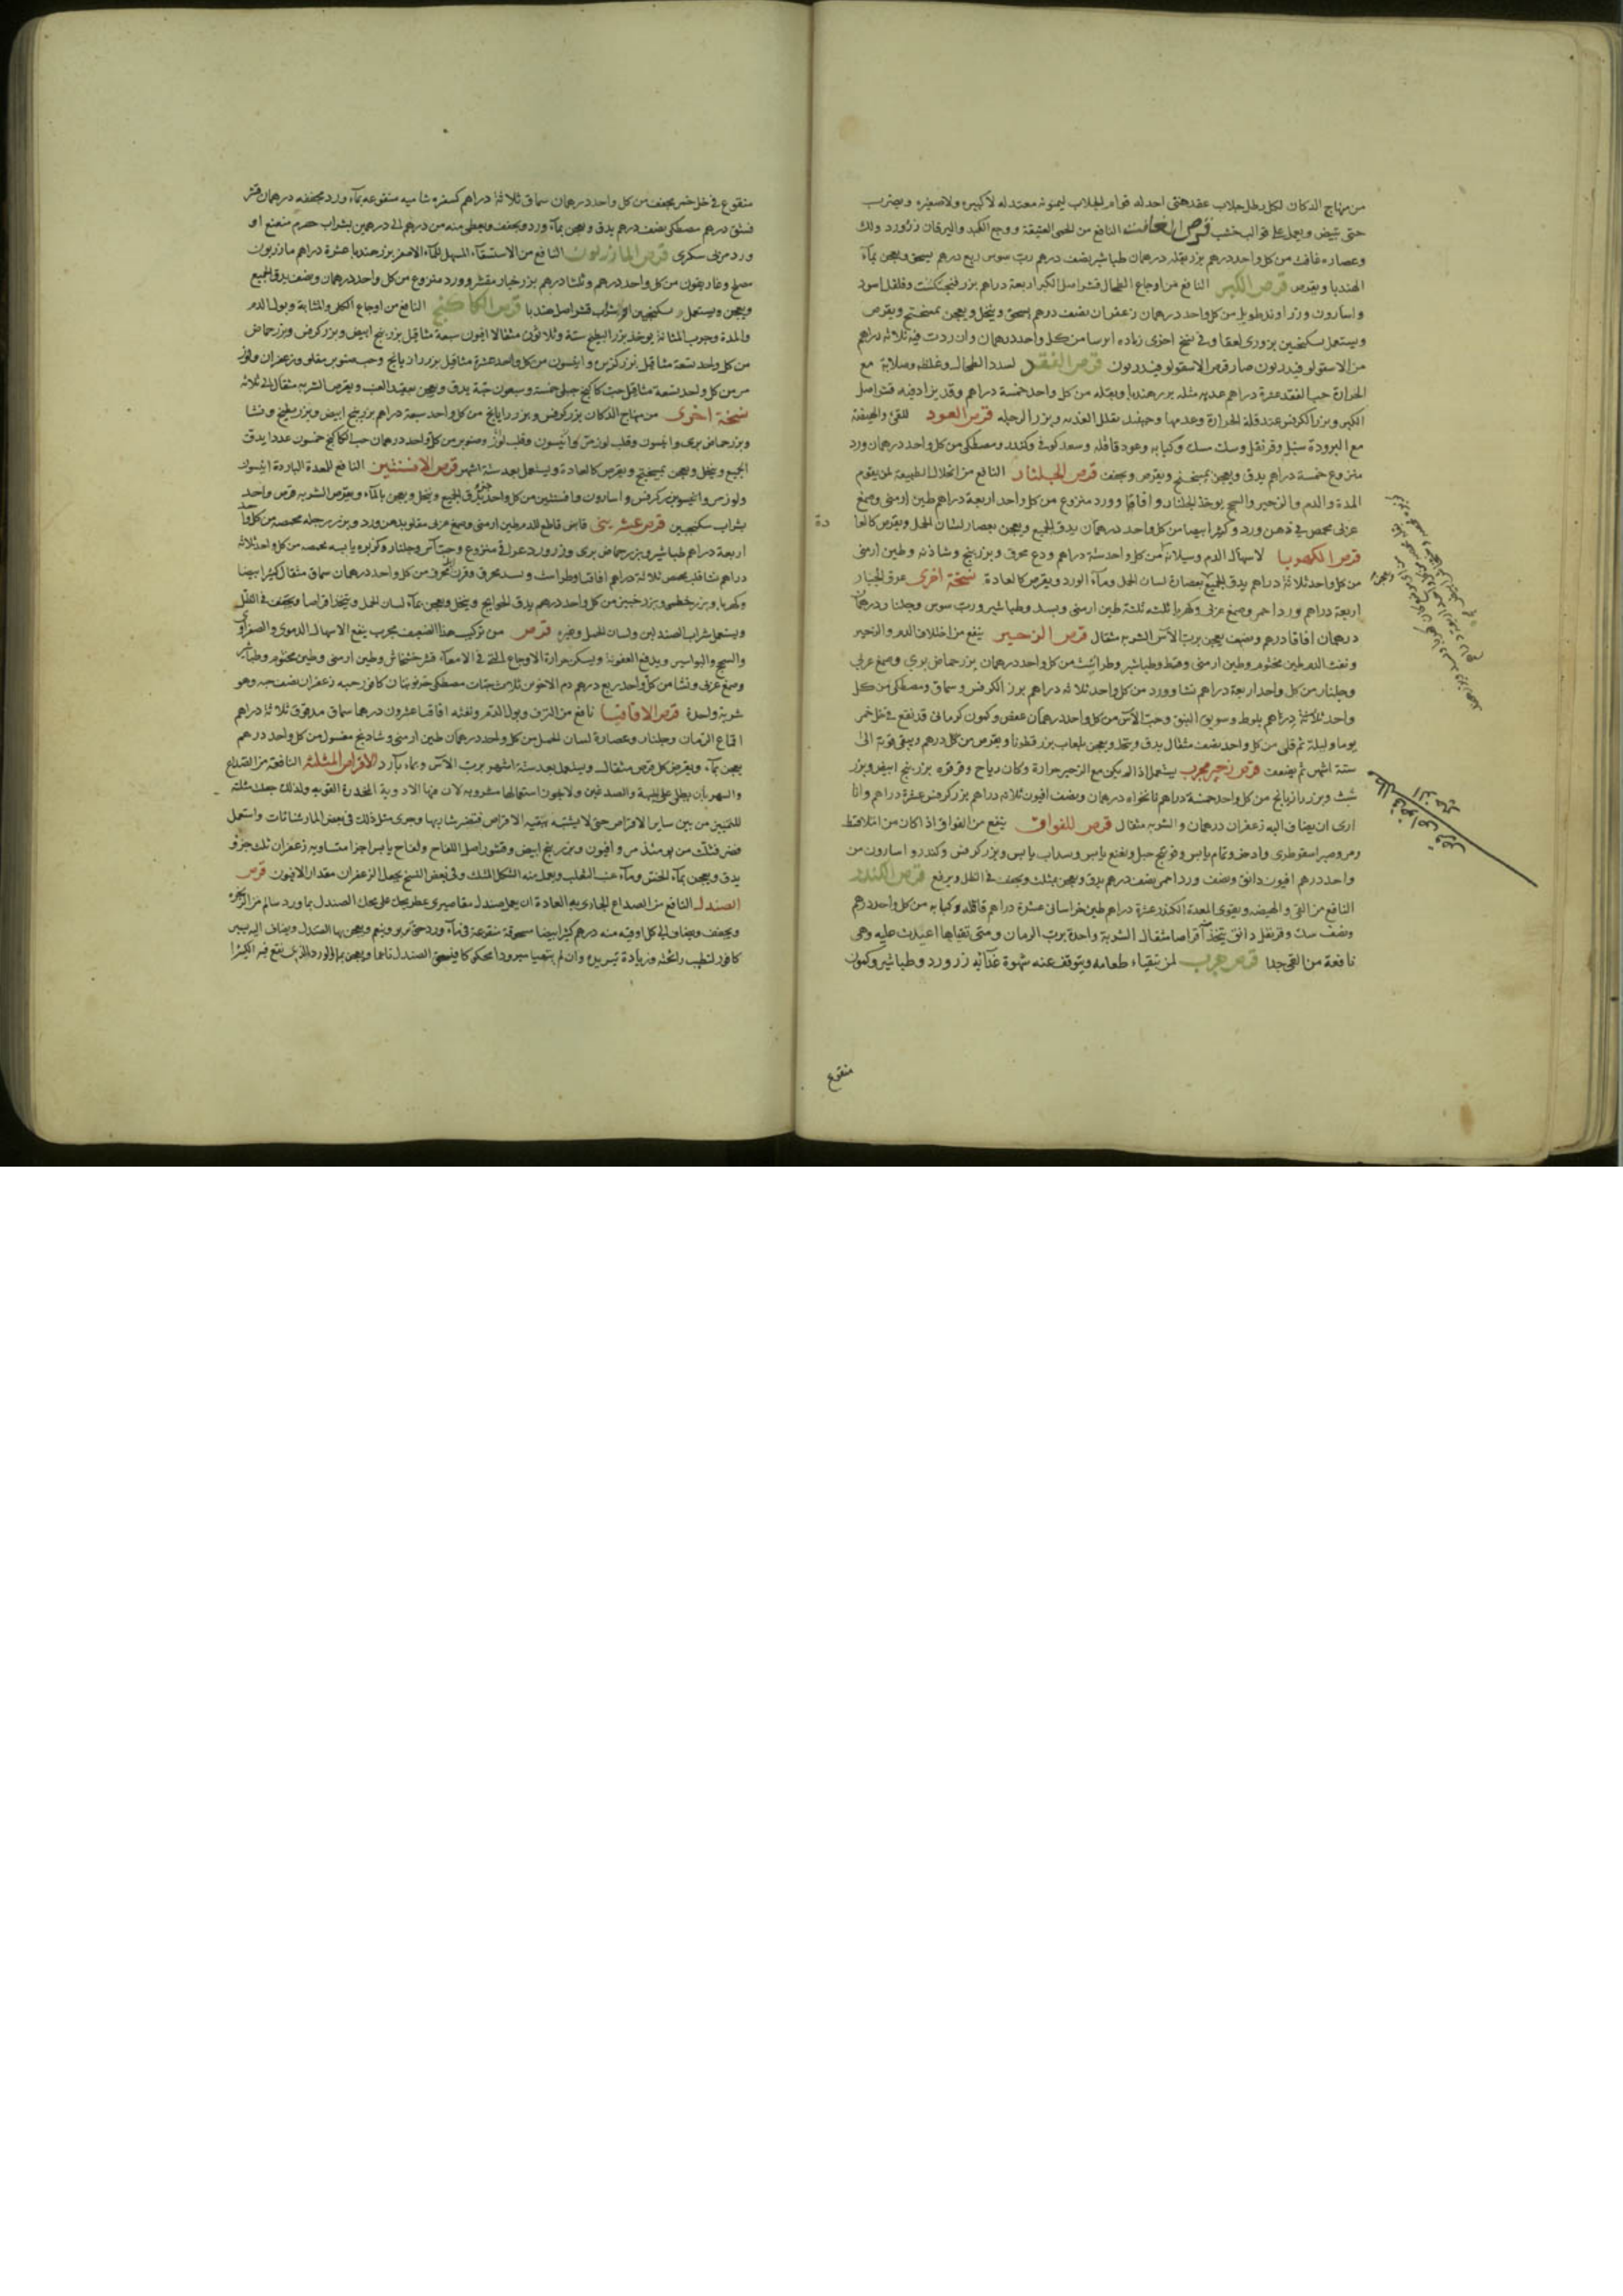 من منهاج الدكان لكل رطل جلاب عقد هتى احد له قوام الجلاب ليمونه معتدله لا كبيره ولا صغيره ويضرب
حتى تبيض ويعمل على قوالب خشب قرص الغافت النافع من الحمى العتيقة ووجع الكبد واليرقان زرورد ولك
وعصاره غافت من كل واحد درهم بزر بقله درهمان طباشير نصف درهم رب سوس ربع درهم يسحق ويعجن بماء
الهندبا ويقرص قرص الكبر النافع من اوجاع الطحال قشر اصل الكبر اربعة دراهم بزر فنجنكشت وفلفل اسود
واسارون وزراوند طويل من كل واحد درهمان زعفران نصف درهم يسحق وينخل ويعجن بميفختج ويقرص
ويستعمل بسكنجبين بزورى لعقا وفي نسخ اخرى زياده ايرسا من كل واحد درهمان وان زدت فيه ثلاثه دراهم
من الاسقولوفندريون صار قرص الاسقولوفندريون قرص الفقد لسدد الطحال وغلظه وصلابة مع
الحرارة حب الفقد عشرة دراهم عدبه مثله بزر هندبا وبقله من كل واحد خمسة دراهم وقد يزاد فيه قشر اصل
الكبر وبزر الكرفس عند قلة الحرارة وعدمها وحينئذ يقلل العذبه وبزر الرجله قرص العود للقئ والهيضة
مع البرودة سنبل وقرنفل وسك سك وكبابه وعود قاقله وسعد كوفي وكندر ومصطكى من كل واحد درهمان ورد
منزوع خمسة دراهم يدق ويعجن بميبختج ويقرص ويجفف قرص الجلنار النافع من انحلال الطبيعة لمن يقوم
المدة والدم والزحير والسحج يوخذ جلنار واقاقيا وورد منزوع من كل واحد اربعة دراهم طين ارمنى وصمغ
عربى محمص في دهن ورد وكثيرا بيضا من كل واحد درهمان يدق الجميع ويعجن بعصار لسان الحمل ويقرص كالعا
دة
قرص الكهربا لاسهال الدم وسيلانه من كل واحد ستة دراهم ودع محرق وبزر بنج وشاذنه وطين ارمنى
من كل واحد ثلاثة دراهم يدق الجميع بعصارة لسان الحمل وماء الورد ويقرص كالعادة نسخة اخرى عرق انجبار
اربعة دراهم ورد احمر وصمغ عربى وكهربا ثلثه ثلثة طين ارمنى وبسد وطباشير ورب سوس وجلنار درهمان
درهمان اقاقيا درهم ونصف يعجن برب الآس الشربه مثقال قرص الزحير ينفع من اختلاف الدم والزحير
ونفث الدم طين مختوم وطين ارمنى وقسط وطباشير وطراثيث من كل واحد درهمان بزر حماض بري وصمغ عربي
وجلنار من كل واحد اربعة دراهم نشا وورد من كل واحد ثلاثه دراهم بزر الكرفس وسماق ومصطكى من كل
واحد ثلاثة دراهم بلوط وسويق النبق وحب الآس من كل واحد درهمان عفص وكمون كرمانى قد نقع في خل خمر
يوما وليلة ثم قلى من كل واحد نصف مثقال يدق وينخل ويعجن بلعاب بزر قطونا ويقرص من كل درهم ويبقى قوته الى
ستة اشهر ثم يضعف قرص زحير مجرب يستعمل اذا لم يكن مع الزحير حرارة وكان رياح وقرقره بزر بنج ابيض وبزر
شبث وبزر رازيانج من كل واحد خمسة دراهم نانخواه درهمان ونصف افيون ثلاثه دراهم بزر كرفس عشرة دراهم وانا
ارى ان يضاف اليه زعفران درهمان والشربه مثقال قرص للفواق ينفع من الفواق اذا كان من اخلاط
ومر وصبر اسقوطرى واذخر ونمام يابس وفودنج جبلي ونعنع يابس وسداب يابس وبزر كرفس وكندر واسارون من
واحد درهم افيون دانق ونصف ورد احمر نصف درهم يدق ويعجن بمثلث ويجفف في الظل ويرفع قرص الكندر
النافع من القئ والهيضه ويقوى المعدة الكندر عشرة دراهم طين خراسانى عشرة دراهم قاقله وكبابه من كل واحد درهم
ونصف سك وقرنفل دانق يتخذ اقراصا مثقال الشربة واحدة برب الرمان ومتى تقياها اعيدت عليه وهى
نافعة من القئ جدا قرص مجرب لمن يتقياء طعامه ويتوقف عنه شهوة غذائه زرورد وطباشير وكمون
منقوع
منقوع في خل خمر يجفف من كل واحد درهمان سماق ثلاثة دراهم كسفره شاميه منقوعه بماء ورد مجففه درهمان قشر
فستق درهم مصطكى نصف درهم يدق ويعجن بماء ورد ويجفف ويعطى منه من درهم الى درهمين بشراب حصرم منعنع او
ورد مربى سكرى قرص المازريون النافع من الاستسقاء المسهل للماء الاصفر بزر هندبا عشرة دراهم مازريون
مصلح وغاريقون من كل واحد درهم وثلثا درهم بزر خيار مقشر وورد منزوع من كل واحد درهمان ونصف يدق الجميع
ويعجن ويستعمل بسكنجبين او بشراب قشر اصل هندبا قرص الكاكنج النافع من اوجاع الكلى والمثانة وبول الدم
والمدة وجرب المثانة يوخذ بزر البطيخ ستة وثلاثون مثقالا افيون سبعة مثاقيل بزر بنج ابيض وبزر كرفس وبزر حماض
من كل واحد تسعة مثاقيل بزر كزبره وانيسون من كل واحد عشرة مثاقيل بزر رازيانج وحب صنوبر مقلو وزعفران ولوز
مر من كل واحد تسعة مثاقيل حب كاكنج جبلى خمسة وسبعون حبة يدق ويعجن بعقيد العنب ويقرص الشربه مثقال الى ثلاثه
نسخة اخرى من منهاج الدكان بزر كرفس وبزر رازيانج من كل واحد سبعة دراهم بزر بنج ابيض وبزر بطيخ ونشا
وبزر حماض برى وانيسون وقلب لوز مر وصنوبر من كل واحد درهمان حب الكاكنج خمسون عددا يدق
الجميع وينخل ويعجن بميبختج ويقرص كالعادة ويستعمل بعد ستة اشهر قرص الافسنتين النافع للمعدة الباردة انيسون
ولوز مر وانيسون بزر كرفس واسارون وافسنتين من كل واحد جزء يدق الجميع وينخل ويعجن بالماء ويقرص الشربه قرص واحد
بشراب سكنجبين قرص عشرينى قابض قاطع للدم طين ارمنى وصمغ عربى مقلو بدهن ورد وبزر رجله محمصه من كل واحد
اربعة دراهم طباشير وبزر حماض برى وزرورد عراقي منزوع وحب آس وجلنار وكزبره يابسه محمصه من كل واحد ثلاثة
دراهم نشا قليه محمص ثلاثة دراهم اقاقيا وطراثيث وبسد محرق وقرن ايل محرق من كل واحد درهمان سماق مثقال كثيرا بيضا
وكهربا وبزر خطمى وبزر خبيز من كل واحد درهم يدق الحوايج وينخل ويعجن بماء لسان الحمل ويتخذ اقراصا ويجفف في الظل
ويستعمل بشراب الصندلين ولسان الحمل وغيره قرص من تركيب هذا الضعيف مجرب ينفع الاسهال الدموى والصفراوى
والسحج والبواسير ويدفع العفونة ويسكن حرارة الاوجاع التى في الامعاء قشر خشخاش وطين ارمنى وطين مختوم وطباشير
وصمغ عربى ونشا من كل واحد ربع درهم دم الاخوين ثلاث حبات مصطكى خرنوبتان كافور حبه زعفران نصف حبه وهو
شربة واحدة قرص الاقاقيا نافع من النزف وبول الدم ونفثه اقاقيا عشرون درهما سماق مدقوق ثلاثة دراهم
اقماع الرمان وجلنار وعصارة لسان الحمل من كل واحد درهمان طين ارمنى وشادنج مغسول من كل واحد درهم
يعجن بماء ويقرص كل قرص مثقال ويستعمل بعد ستة اشهر برب الآس وبماء بارد الاقراص المثلثه النافعة من الصداع
والسهر بان يطلى على الجبهة والصدغين ولا يجوز استعمالها مشروبه لان فيها الادوية المخدرة القويه ولذلك جعلت مثلثه
للتمييز من بين ساير الاقراص حتى لا يشتبه ببقيه الاقراص فتضر شاربها وجرى مثل ذلك في بعض المارستانات واستعمل
فضر فثلث من يومئذ مر وافيون وبزر بنج ابيض وقشور اصل اللفاح ولفاح يابس اجزا متساويه زعفران ثلث جزؤ
يدق ويعجن بماء الخس وماء عنب الثعلب ويعمل منه الشكل المثلث وفي بعض النسخ يجعل الزعفران مقدار الافيون قرص
الصندل النافع من الصداع الجارى به العادة ان يعمل صندل مقاصيرى عطر يحك على محك الصندل بماورد سالم من الزنخره
ويجفف ويضاف الى كل اوقيه منه درهم كثيرا بيضا مسحوقة منقوعة في ماء ورد حتى تربو وينعم ويعجن بها الصندل ويضاف اليه يسير
كافور لتطيب رائحته وزيادة تبريده وان لم يتهيا مبرودا محكوكا فيسحق الصندل ناعما ويعجن بماء الورد الذى نقع فيه الكثيرا